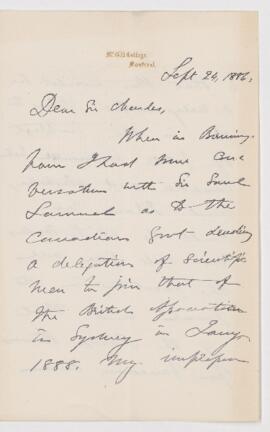 McGill College,
Montreal.
Sept 24, 1886.
Dear Sir Charles,
When in Birming-
ham I had some con
versation with Sir Saul
Samuel as to the
Canadian Govt sending
a delegation of scientific
men to join that of
the British Association
in Sydney in Jany
1888. My impression